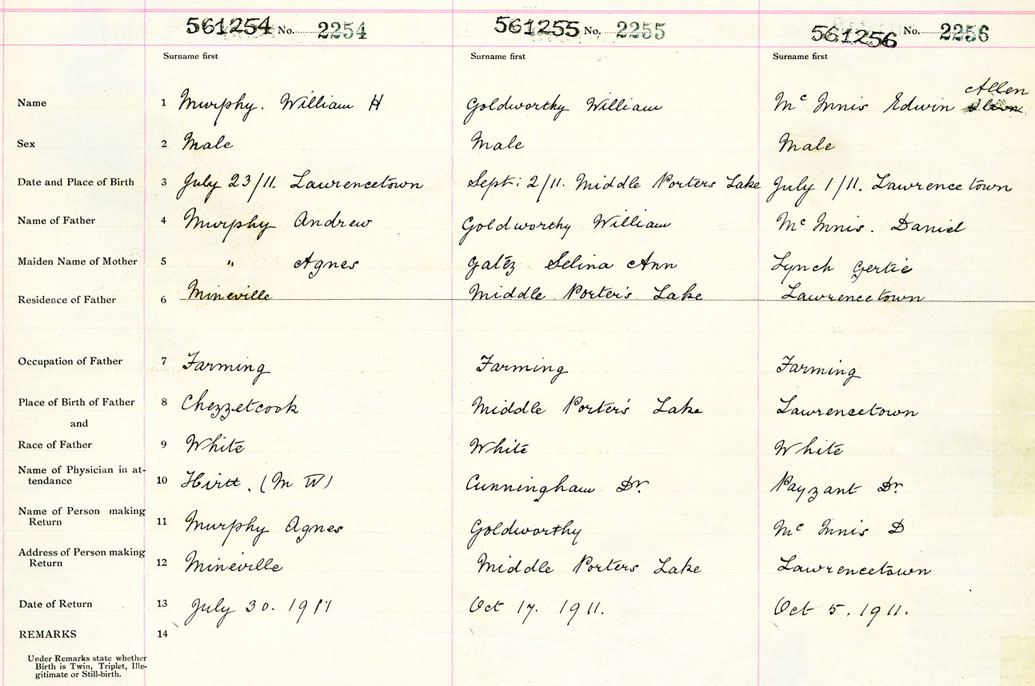 561254 No. 2254 561255 No. 2255 561256 No. 2256
Surname first Surname first Surname first
Allen
Name 1 Murphy. William H Goldworthy William Mc Innis Edwin
Sex 2 Male Male Male
Date and Place of Birth 3 July 23/11. Lawrencetown Sept: 2/11. Middle Porters Lake July 1/11. Lawrencetown
Name of Father 4 Murphy Andrew Goldworthy William Mc Innis. Daniel
Maiden Name of Mother 5 " Agnes Gatez Selina Ann Lynch Gertie
Residence of Father 6 Mineville Middle Porter's Lake Lawrencetown
Occupation of Father 7 Farming Farming Farming
Place of Birth of Father 8 Chezzetcook Middle Porter's Lake Lawrencetown
and
Race of Father 9 White White White
Name of Physician in at-
tendance 10 (M W) Cunningham Dr. Payzant Dr.
Name of Person making
Return 11 Murphy Agnes Goldworthy Mc Innis D
Address of Person making
Return 12 Mineville Middle Porters Lake Lawrencetown
Date of Return 13 July 30. 1911 Oct 17. 1911. Oct 5. 1911.
REMARKS 14
Under Remarks state whether
Birth is Twin, Triplet, Ille-
gitimate or Still-birth.